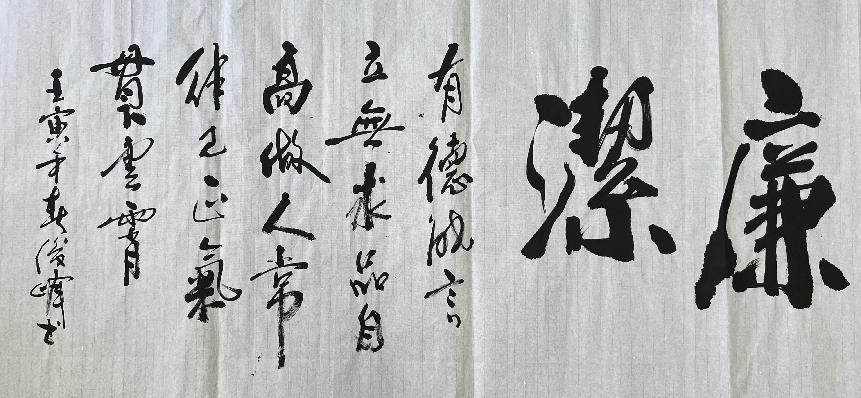 廉
潔
有德成言
立無求品自
高做人常
律己正氣
貫雲霄
壬寅年春俊峰书